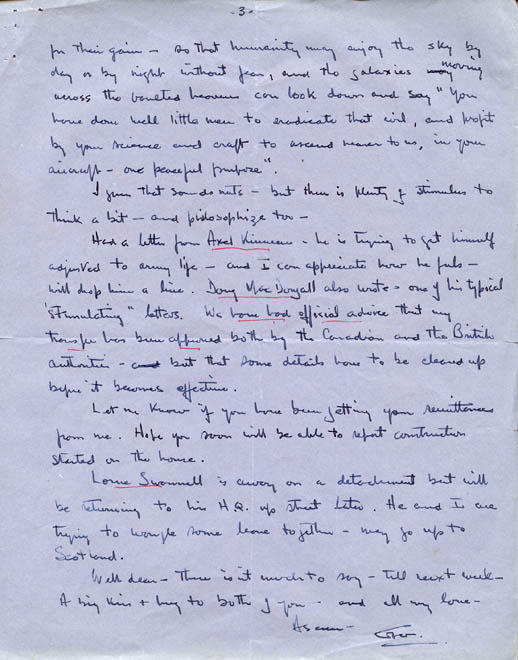 - 3 -
for their gain - so that humanity may enjoy the sky by
day or by night without fear, and the galaxies moving
across the heavens can look down and say "You
have done well little men to eradicate that evil, and profit
by your science and craft to ascend nearer to us, in your
aircraft - one peaceful purpose".
I guess that sounds nuts - but there is plenty of stimulus to
think a bit - and philosophize too -
Had a letter from Axel Kinnear - he is trying to get himself
adjusted to army life - and I can appreciate how he feels -
will drop him a line. Doug MacDougall also wrote - one of his typical
"stimulating" letters. We have had official advice that my
transfer has been approved both by the Canadian and the British
authorities - but that some details have to be cleaned up
before it becomes effective.
Let me know if you have been getting your remittances
from me. Hope you soon will be able to report construction
started on the house.
Lorne Swannell is away on a detachment but will
be returning to his H.Q. up street later. He and I are
trying to wangle some leave together - may go up to
Scotland.
Well dear - there isn't much to say - till next week -
A big kiss + hug to both of you - and all my love -
As ever -